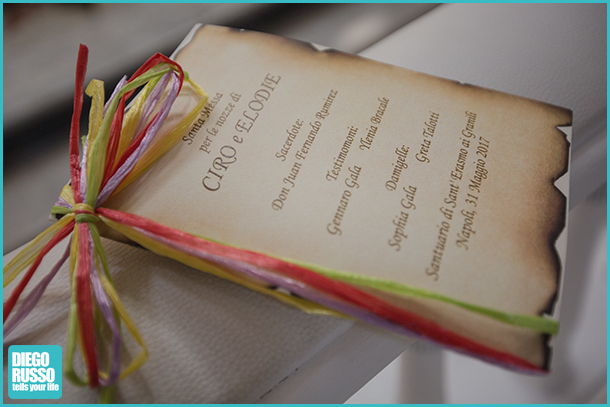 Santa Messa
per le nozze di
CIRO e ELODIE
Sacerdote:
Don Juan Fernando Ramirez
Testimomoni:
Gennaro Gala Ylenia Bracale
Damigelle:
Sophia Gala Greta Talotti
Santuario di Sant'Erasmo ai Granili
Napoli, 31 Maggio 2017
DIEGO
RUSSO
tells your life